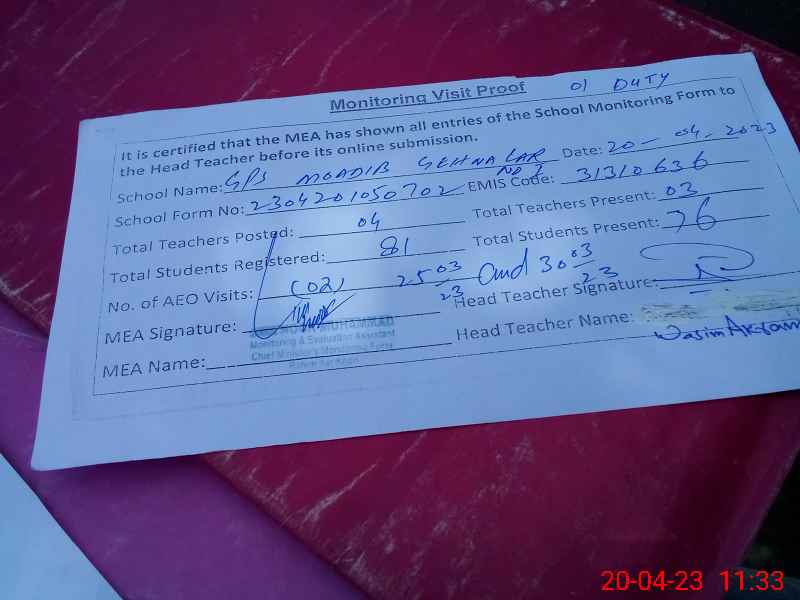 Monitoring Visit Proof 01 DUTY
It is certified that the MEA has shown all entries of the School Monitoring Form to
the Head Teacher before its online submission.
School Name: GPS MOADIB GEHNA LAR NO 2 Date: 20-04-2023
School Form No: 2304201050702 EMIS Code: 31310636
Total Teachers Posted: 04 Total Teachers Present: 03
Total Students Registered: 81 Total Students Present: 76
No. of AEO Visits: (02) 25 03 23 and 30 03 23
MEA Signature: Head Teacher Signature:
MEA Name: Head Teacher Name: Wasim Akram
MUHAMMAD
Monitoring & Evaluation Assistant
Chief Minister's Monitoring Force
20-04-23 11:33